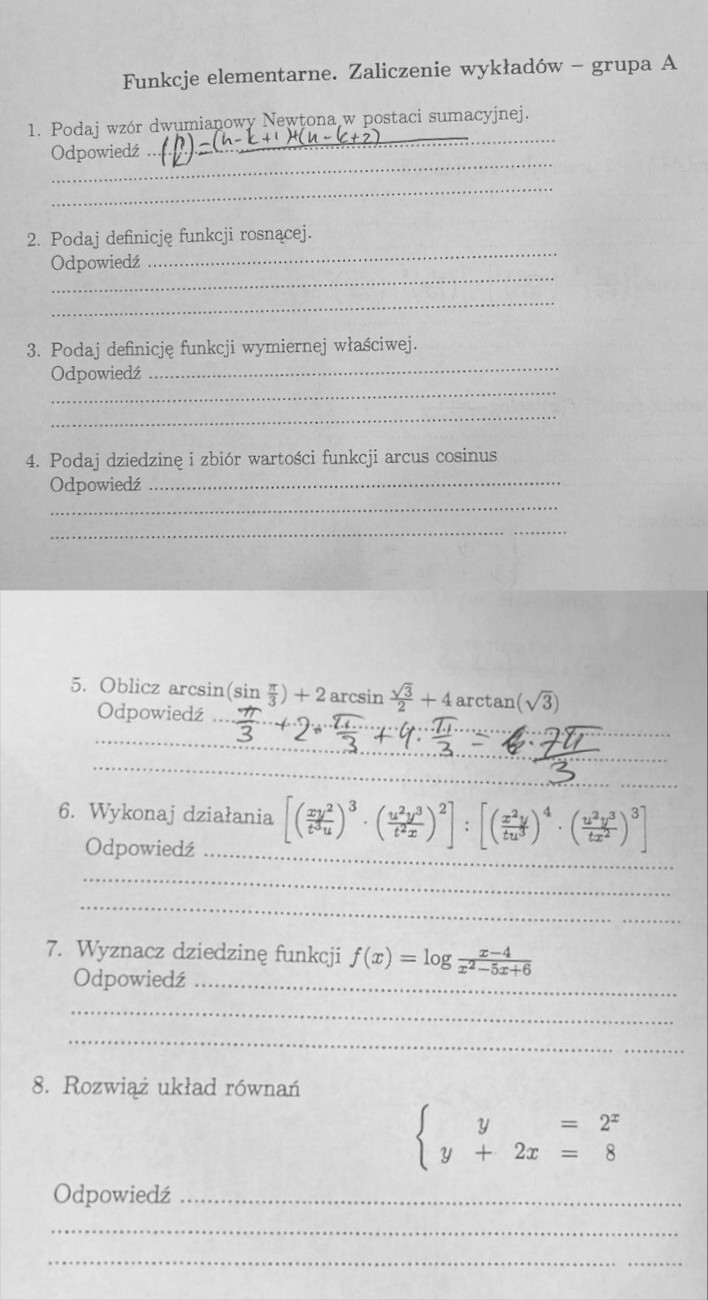 Funkcje elementarne. Zaliczenie wykładów – grupa A
1. Podaj wzór dwumianowy Newtona w postaci sumacyjnej.
Odpowiedź ...(n k) = (n-k+1)*(n-k+2)
2. Podaj definicję funkcji rosnącej.
Odpowiedź
3. Podaj definicję funkcji wymiernej właściwej.
Odpowiedź
4. Podaj dziedzinę i zbiór wartości funkcji arcus cosinus
Odpowiedź
5. Oblicz arcsin(sin π/3) + 2 arcsin √3/2 + 4 arctan(√3)
Odpowiedź π/3 + 2 · π/3 + 4 · π/3 = 7π/3
6. Wykonaj działania [(xy²/t³u)³ · (u²y³/t²x)²] : [(x²y/tu³)⁴ · (u²y³/tx²)³]
Odpowiedź
7. Wyznacz dziedzinę funkcji f(x) = log x−4/x²−5x+6
Odpowiedź
8. Rozwiąż układ równań
{ y = 2ˣ
y + 2x = 8
Odpowiedź